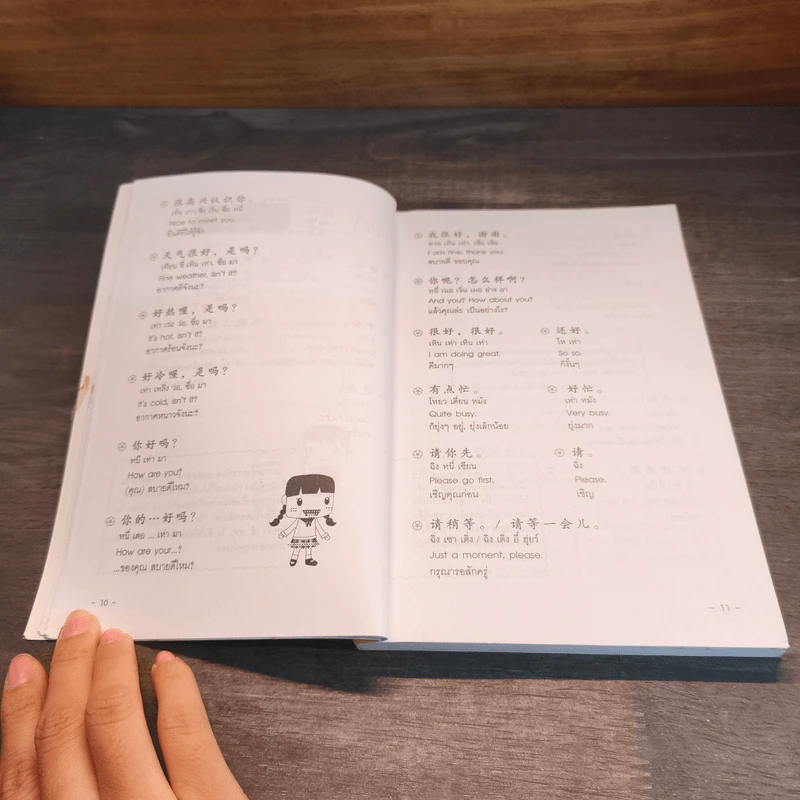 很高兴认识你。
Nice to meet you.
ยินดีที่ได้รู้จัก
天气很好，是吗？
เทียน ชี่ เหิน เห่า, ซื่อ มา
Fine weather, isn't it?
อากาศดีจังนะ?
好热喔，是吗？
เห่า เร่อ ว่อ, ซื่อ มา
It's hot, isn't it?
อากาศร้อนจังนะ?
好冷喔，是吗？
เห่า เหลิ่ง ว่อ, ซื่อ มา
It's cold, isn't it?
อากาศหนาวจังนะ?
你好吗？
หนี เห่า มา
How are you?
(คุณ) สบายดีไหม?
你的…好吗？
หนี่ เตอ ... เห่า มา
How are your...?
...ของคุณ สบายดีไหม?
- 10 -
我很好，谢谢。
หว่อ เหิน เห่า, เซี่ย เซี่ย
I am fine, thank you.
สบายดี ขอบคุณ
你呢？怎么样啊？
And you? How about you?
แล้วคุณล่ะ เป็นอย่างไร?
很好，很好。
เหิน เห่า เหิน เห่า
I am doing great.
ดีมากๆ
还好。
ไห เห่า
So so.
ก็งั้นๆ
有点忙。
โหยว เตี่ยน หมัง
Quite busy.
ก็ยุ่งๆ อยู่, ยุ่งเล็กน้อย
好忙。
เห่า หมัง
Very busy.
ยุ่งมาก
请你先。
ฉิ่ง หนี่ เซียน
Please go first.
เชิญคุณก่อน
请。
ฉิ่ง
Please.
เชิญ
请稍等。/ 请等一会儿。
ฉิ่ง เซา เติ่ง / ฉิ่ง เติ่ง อี๋ ฮุ่ยร์
Just a moment, please.
กรุณารอสักครู่
- 11 -